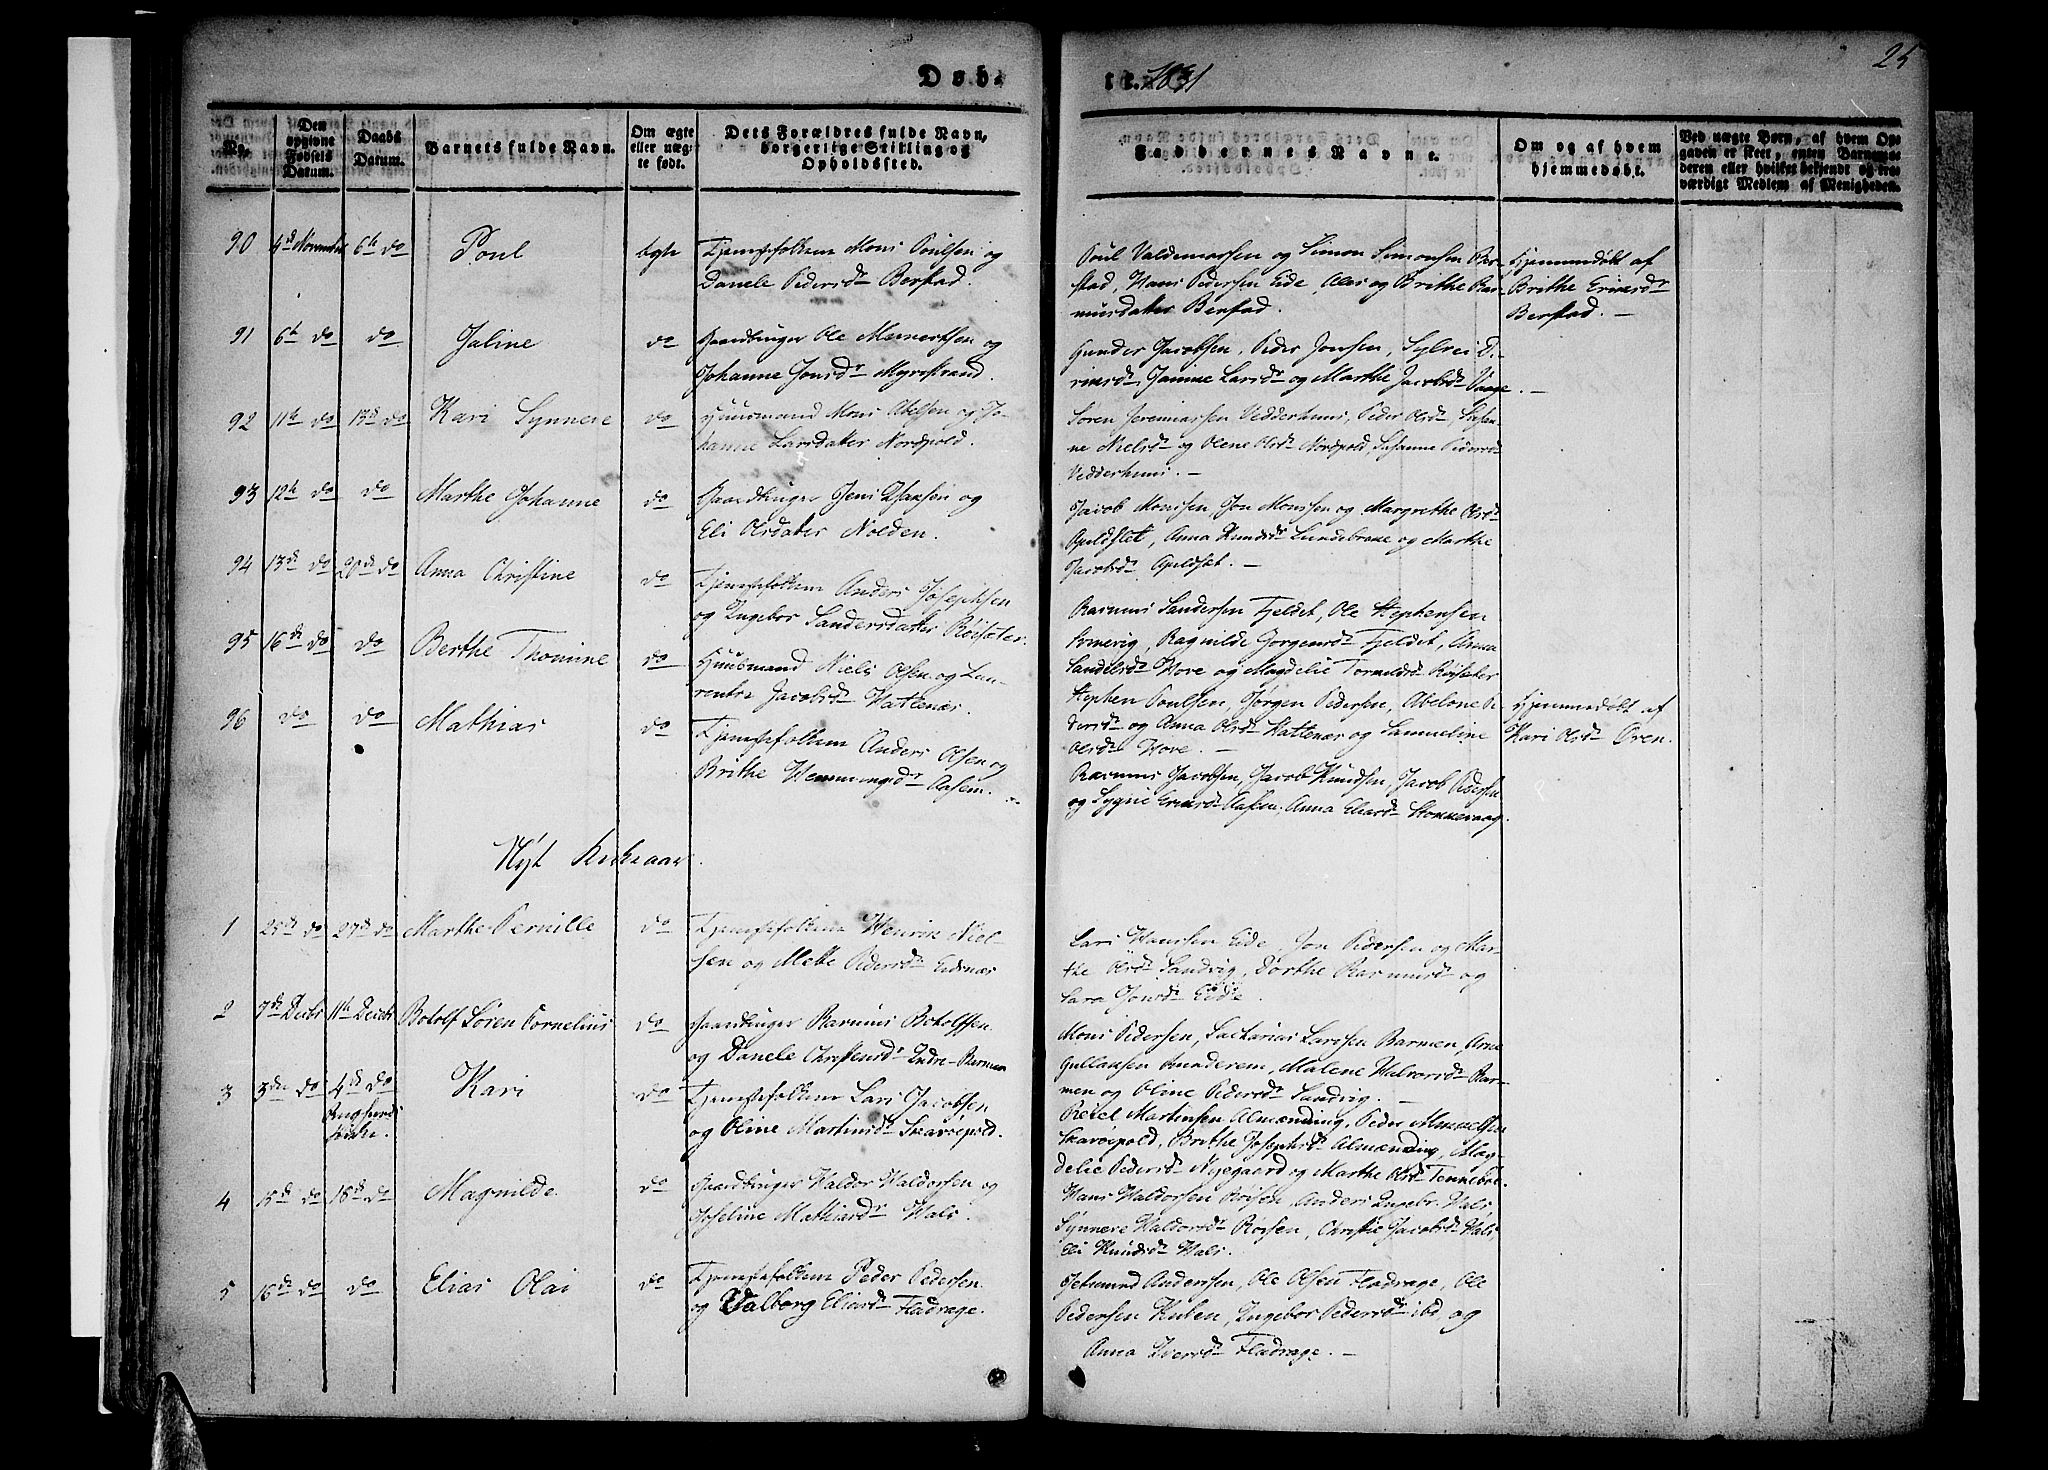 25
Døb-
te. 1831
No.
Den
opgivne
Fødsels
Datum.
Daabs
Datum.
Barnets fulde Navn.
Om ægte
eller uæg-
te født.
Dets Forældres fulde Navn,
borgerlige Stilling og
Opholdssted.
Faddernes Navne.
Om og af hvem
hjemmedøbt.
Ved uægte Børn, af hvem Op-
gaven er skeet, enten Barnemo-
deren eller hvilket bekjendt og tro-
værdigt Medlem af Menigheden.
90
4de November
6te do
Poul
ægte
Tjenestefolkene Mons Poulsen og
Danele Pedersdr Berstad.
Poul Valdemarsen og Simon Simonsen Ber-
stad, Hans Pedersen Eide, Oles og Brithe Ras-
musdatter Berstad.
Hjemmedøbt af
Brithe Ericsdr
Berstad. –
91
6te do
do
Jaline
do
Gaardbruger Ole Meinertsen og
Johanne Jonsdr Myrestrand.
Gunder Jacobsen, Peder Jonsen, Sylvei I-
versdr, Janine Larsdr og Marthe Jacobsdr Vaage. –
92
11te do
13de do
Kari Synneve
do
Huusmand Mons Abelsen og Jo-
hanne Larsdatter Nordpold.
Søren Jeremiassen Vedderhuus, Peder Olsdr, Susan-
ne Nielsdr og Olene Olsdr Nordpold, Susanne Pedersdr
Vedderhuus. –
93
12te do
do
Marthe Johanne
do
Gaardbruger Jens Isaksen og
Eli Olsdatter Nolden.
Jacob Monssen, Jon Monssen og Margrethe Olsdr
Apuldset, Anna Knudsdr Lundebrexe og Marthe
Jacobsdr Apuldset. –
94
13de do
20de do
Anna Christine
do
Tjenestefolkene Anders Josephsen
og Ingebor Sandersdatter Røisæter.
Rasmus Sandersen Fjeldet, Ole Stephensen
Ragnilde Gorgensdr Fjeldet, Anna
Sandersdr Hove og Magdelie Tormodsdr Røisæter
95
16de do
do
Berthe Thomine
do
Huusmand Niels Olsen og Lau-
rentze Jacobsdr Hattenæs.
Stephen Poulsen, Jørgen Pedersen, Abelone Pe-
dersdr og Anna Olsdr Hattenæs og Samueline
Olsdr Hove. –
96
do
do
Mathias
do
Tjenestefolkene Anders Olsen og
Brithe Hemmingsdr Aasem. –
Rasmus Jacobsen, Jacob Knudsen, Jacob Pedersen
og Sygne Ericsdr Aasen, Anna Eliasdr Stonnevaag.
Hjemmedøbt af
Kari Olsdr Øren.
Nyt Kirkeaar.
1
25de do
27de do
Marthe Pernille
do
Tjenestefolkene Henrik Niel-
sen og Mette Pedersdr Eidsnæs
Lars Hanssen Eide, Jon Pedersen og Mar-
the Olsdr Sandvig, Dorthe Rasmusdr og
Sara Jonsdr Eide.
2
7de Decbr
11te Decbr
Botolf Søren Cornelius
do
Gaardbruger Rasmus Botolfsen
og Danele Christensdr Indre-Barmen
Mons Pedersen, Zacharias Larssen Barmen, Arne
Gullaksen Malene Halvorsdr Bar-
men og Oline Pedersdr Sandvig. –
3
3die do
4de do
Kirke.
Kari
do
Tjenestefolkene Lars Jacobsen
og Oline Martinsdr Skavøipold.
Peter Martinsen Almænding, Peder
Skavøipold, Brithe Josephsdr Almænding, Mag-
delie Pedersdr Nygaard og Marthe Olsdr Tennebøe.
4
15de do
18de do
Magnilde
do
Gaardbruger Haldor Haldorsen og
Joseline Mathiasdr Hals.
Hans Haldorsen Røisen, Anders Ingebr. Hals
Synneve Haldorsdr Røisen, Christie Jacobsdr Hals,
Eli Knudsdr Hals.
5
16de do
do
Elias Olai
do
Tjenestefolkene Peder Pedersen
og Valborg Eliasdr Fladrage.
Jetmund Anderssen, Ole Olsen Fladrage, Ole
Pedersen Huken, Ingebor Pedersdr ibd, og
Anna Iversdr Fladrage. –